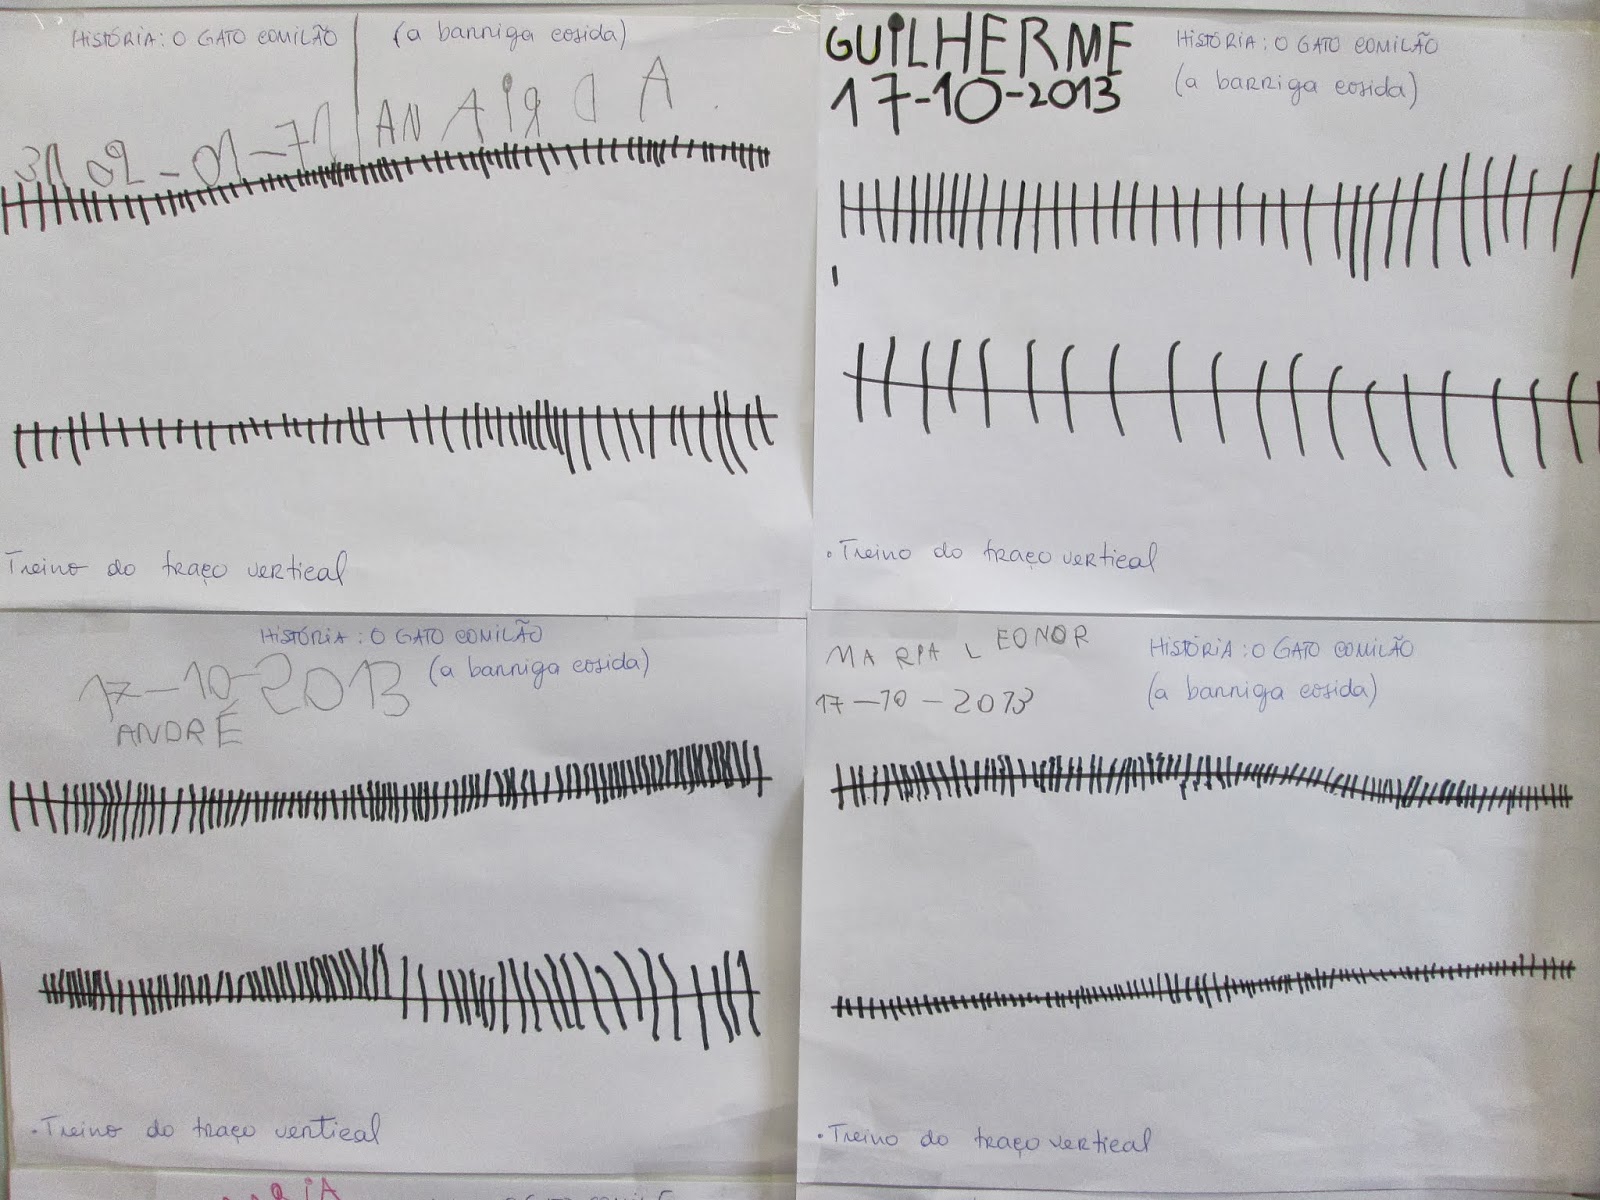 HISTÓRIA: O GATO COMILÃO (a barriga cosida)
3102-01-71 ANAIRDA
Treino do traço vertical
GUILHERME
17-10-2013
HISTÓRIA: O GATO COMILÃO
(a barriga cosida)
. Treino do traço vertical
HISTÓRIA: O GATO COMILÃO
(a barriga cosida)
17-10-2013
ANDRÉ
. Treino do traço vertical
MARIA LEONOR
17-10-2013
HISTÓRIA: O GATO COMILÃO
(a barriga cosida)
. Treino do traço vertical